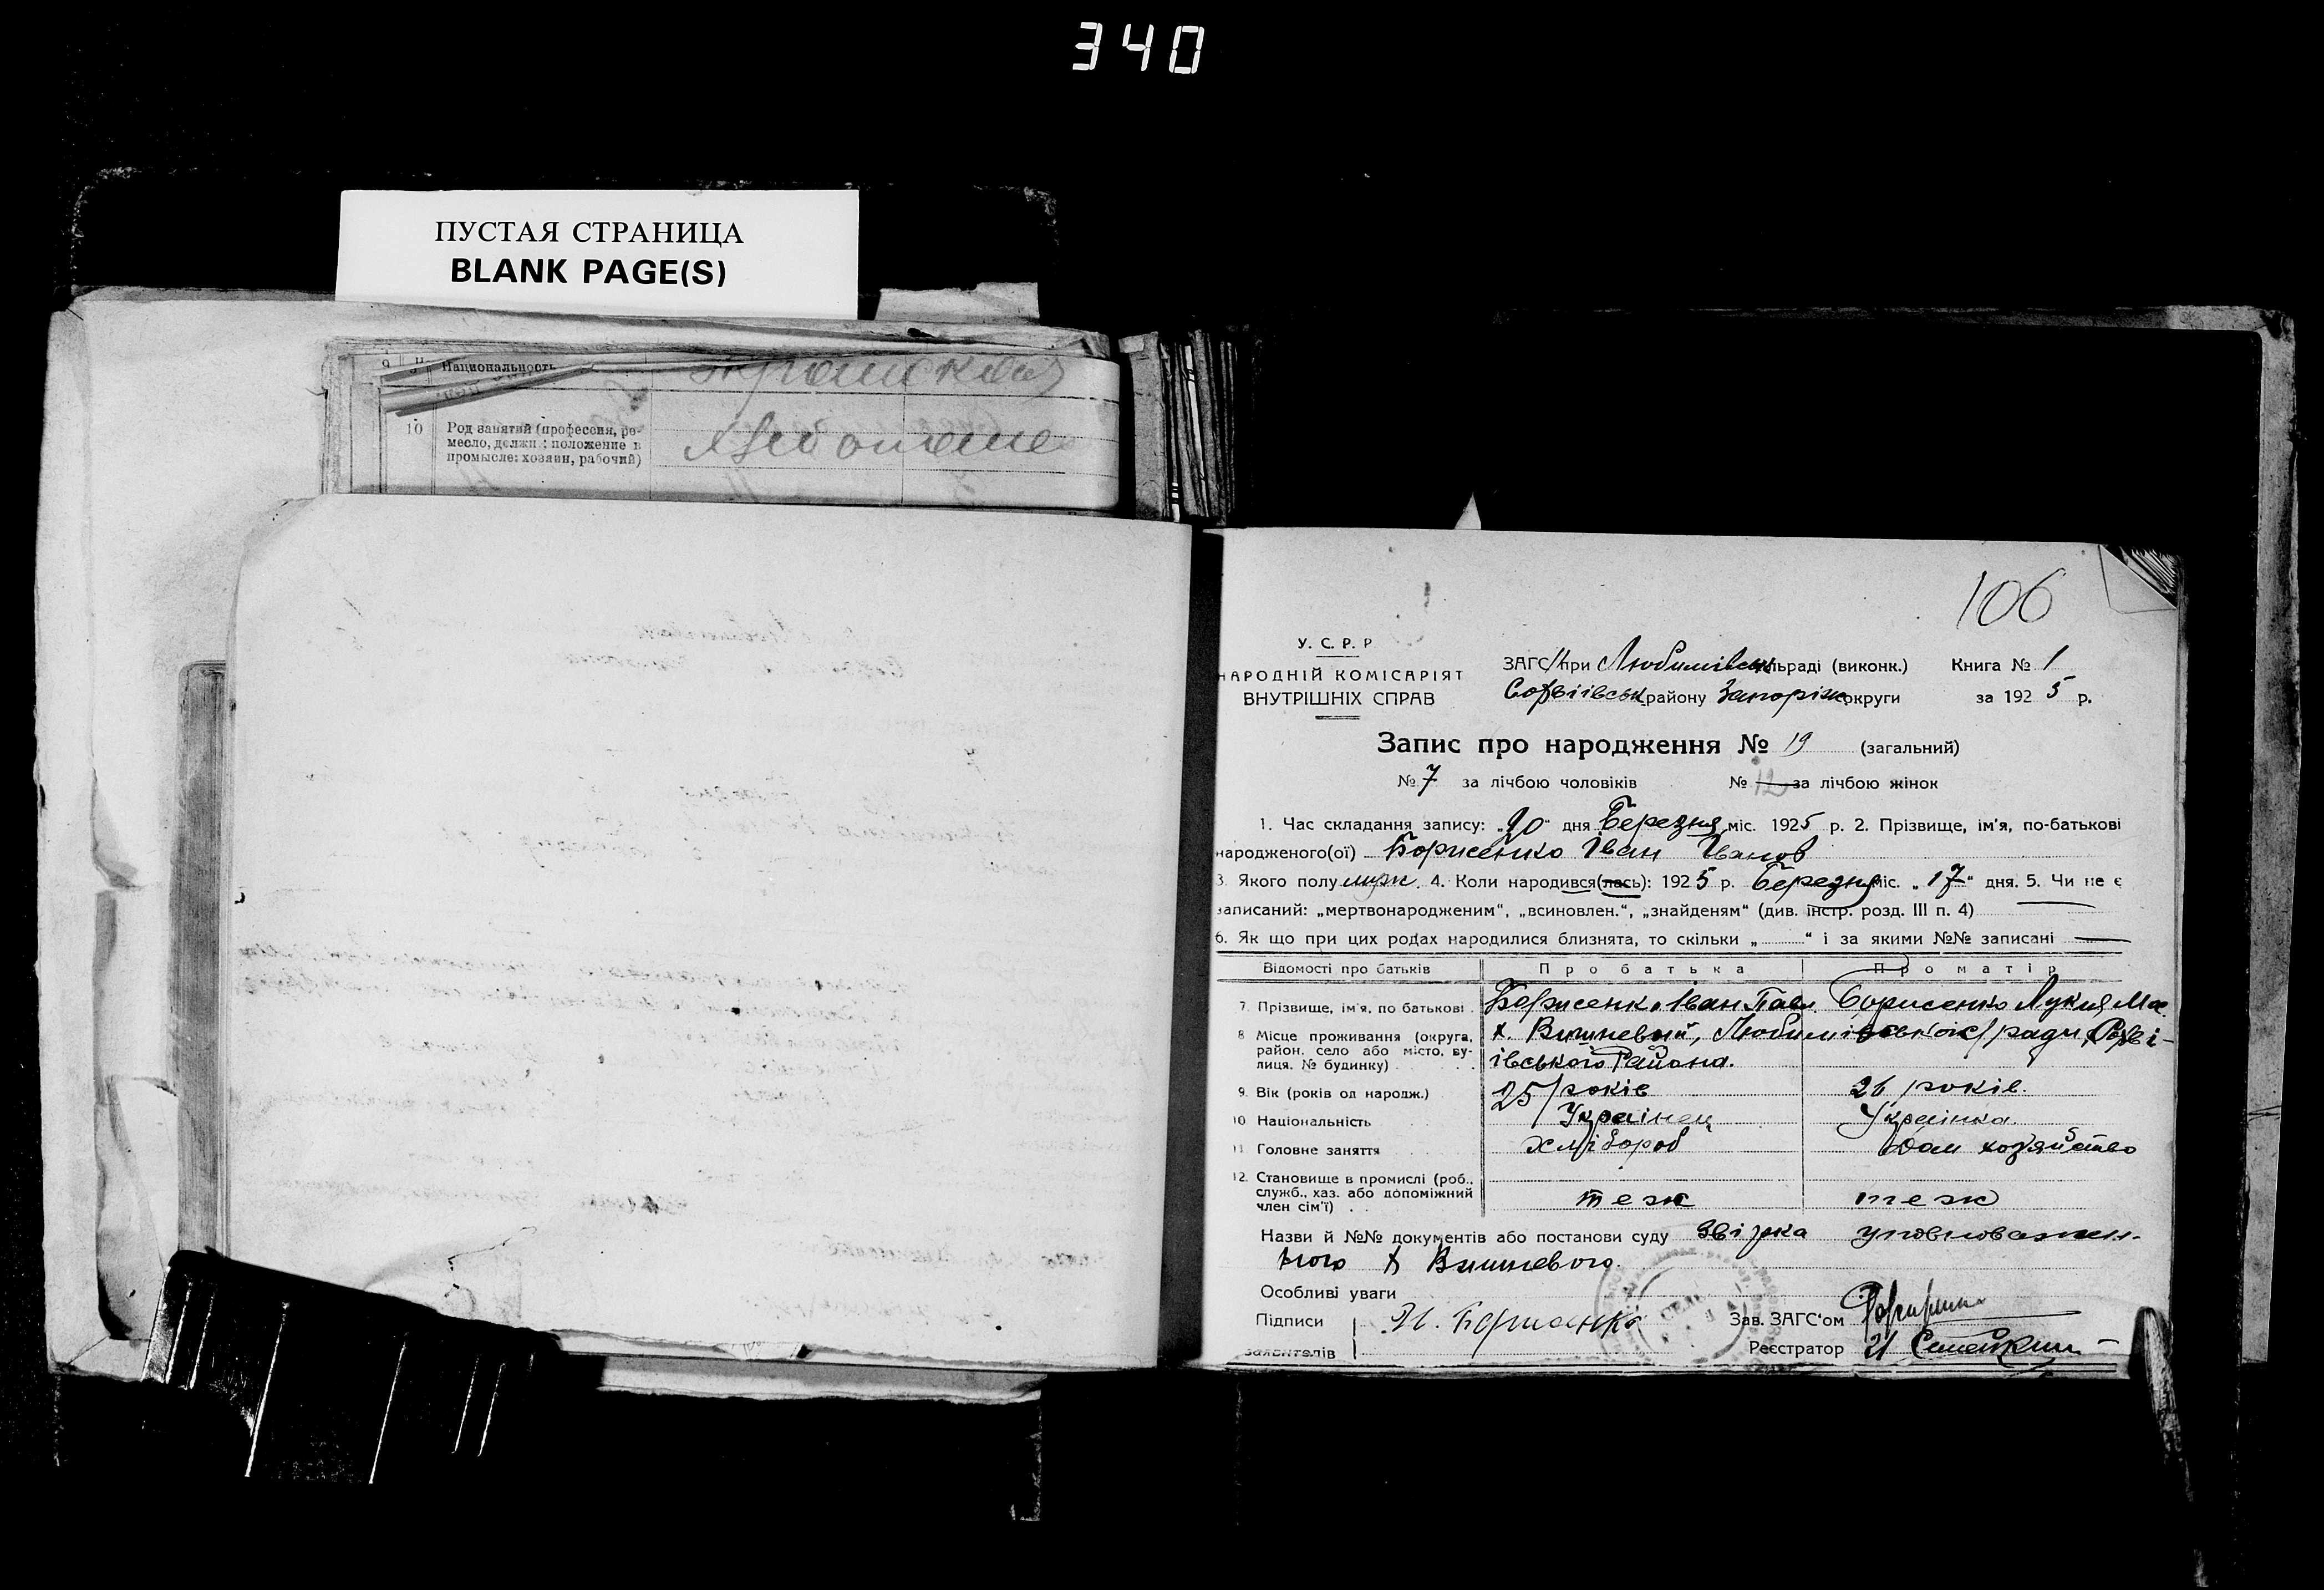 340
ПУСТАЯ СТРАНИЦА
BLANK PAGE(S)
9 Национальность
10 Род занятий (профессия, ре-
месло, должн.: положение в
промысле: хозяин, рабочий)
106
У. С. Р. Р
НАРОДНІЙ КОМІСАРІЯТ
ВНУТРІШНІХ СПРАВ
ЗАГС при Любимівськ сільраді (виконк.) Книга № 1
Софіівськ району Запоріж округи за 1925 р.
Запис про народження № 19 (загальний)
№ 7 за лічбою чоловіків № 12 за лічбою жінок
1. Час складання запису: „20“ дня Березня міс. 1925 р. 2. Прізвище, ім'я, по-батькові
народженого(ої) Борисенко Іван Іванов
3. Якого полу муж. 4. Коли народився(лась): 1925 р. Березня міс. „17“ дня. 5. Чи не є
записаний: „мертвонародженим“, „всиновлен.“, „знайденям“ (див. інстр. розд. III п. 4)
6. Як що при цих родах народилися близнята, то скільки „ “ і за якими №№ записані
Відомості про батьків Про батька Про матір
7. Прізвище, ім'я, по батькові Борисенко Іван Павл. Борисенко Лукия
8 Місце проживання (округа, район, село або місто, ву-
лиця, № будинку)
х. Вишневый, Любимівської с/ради, Софі-
івського Района.
9. Вік (років од народж.) 25 років 26 років.
10 Національність Українец Українка.
11 Головне заняття хлібороб Дом хозяйство
12. Становище в промислі (роб.,
служб., хаз. або допоміжний
член сім'ї) теж теж
Назви й №№ документів або постанови суду Звірка уповноважен-
ного х Вишневого.
Особливі уваги
Підписи И. Борисенко Зав. ЗАГС'ом
заявителів Реєстратор